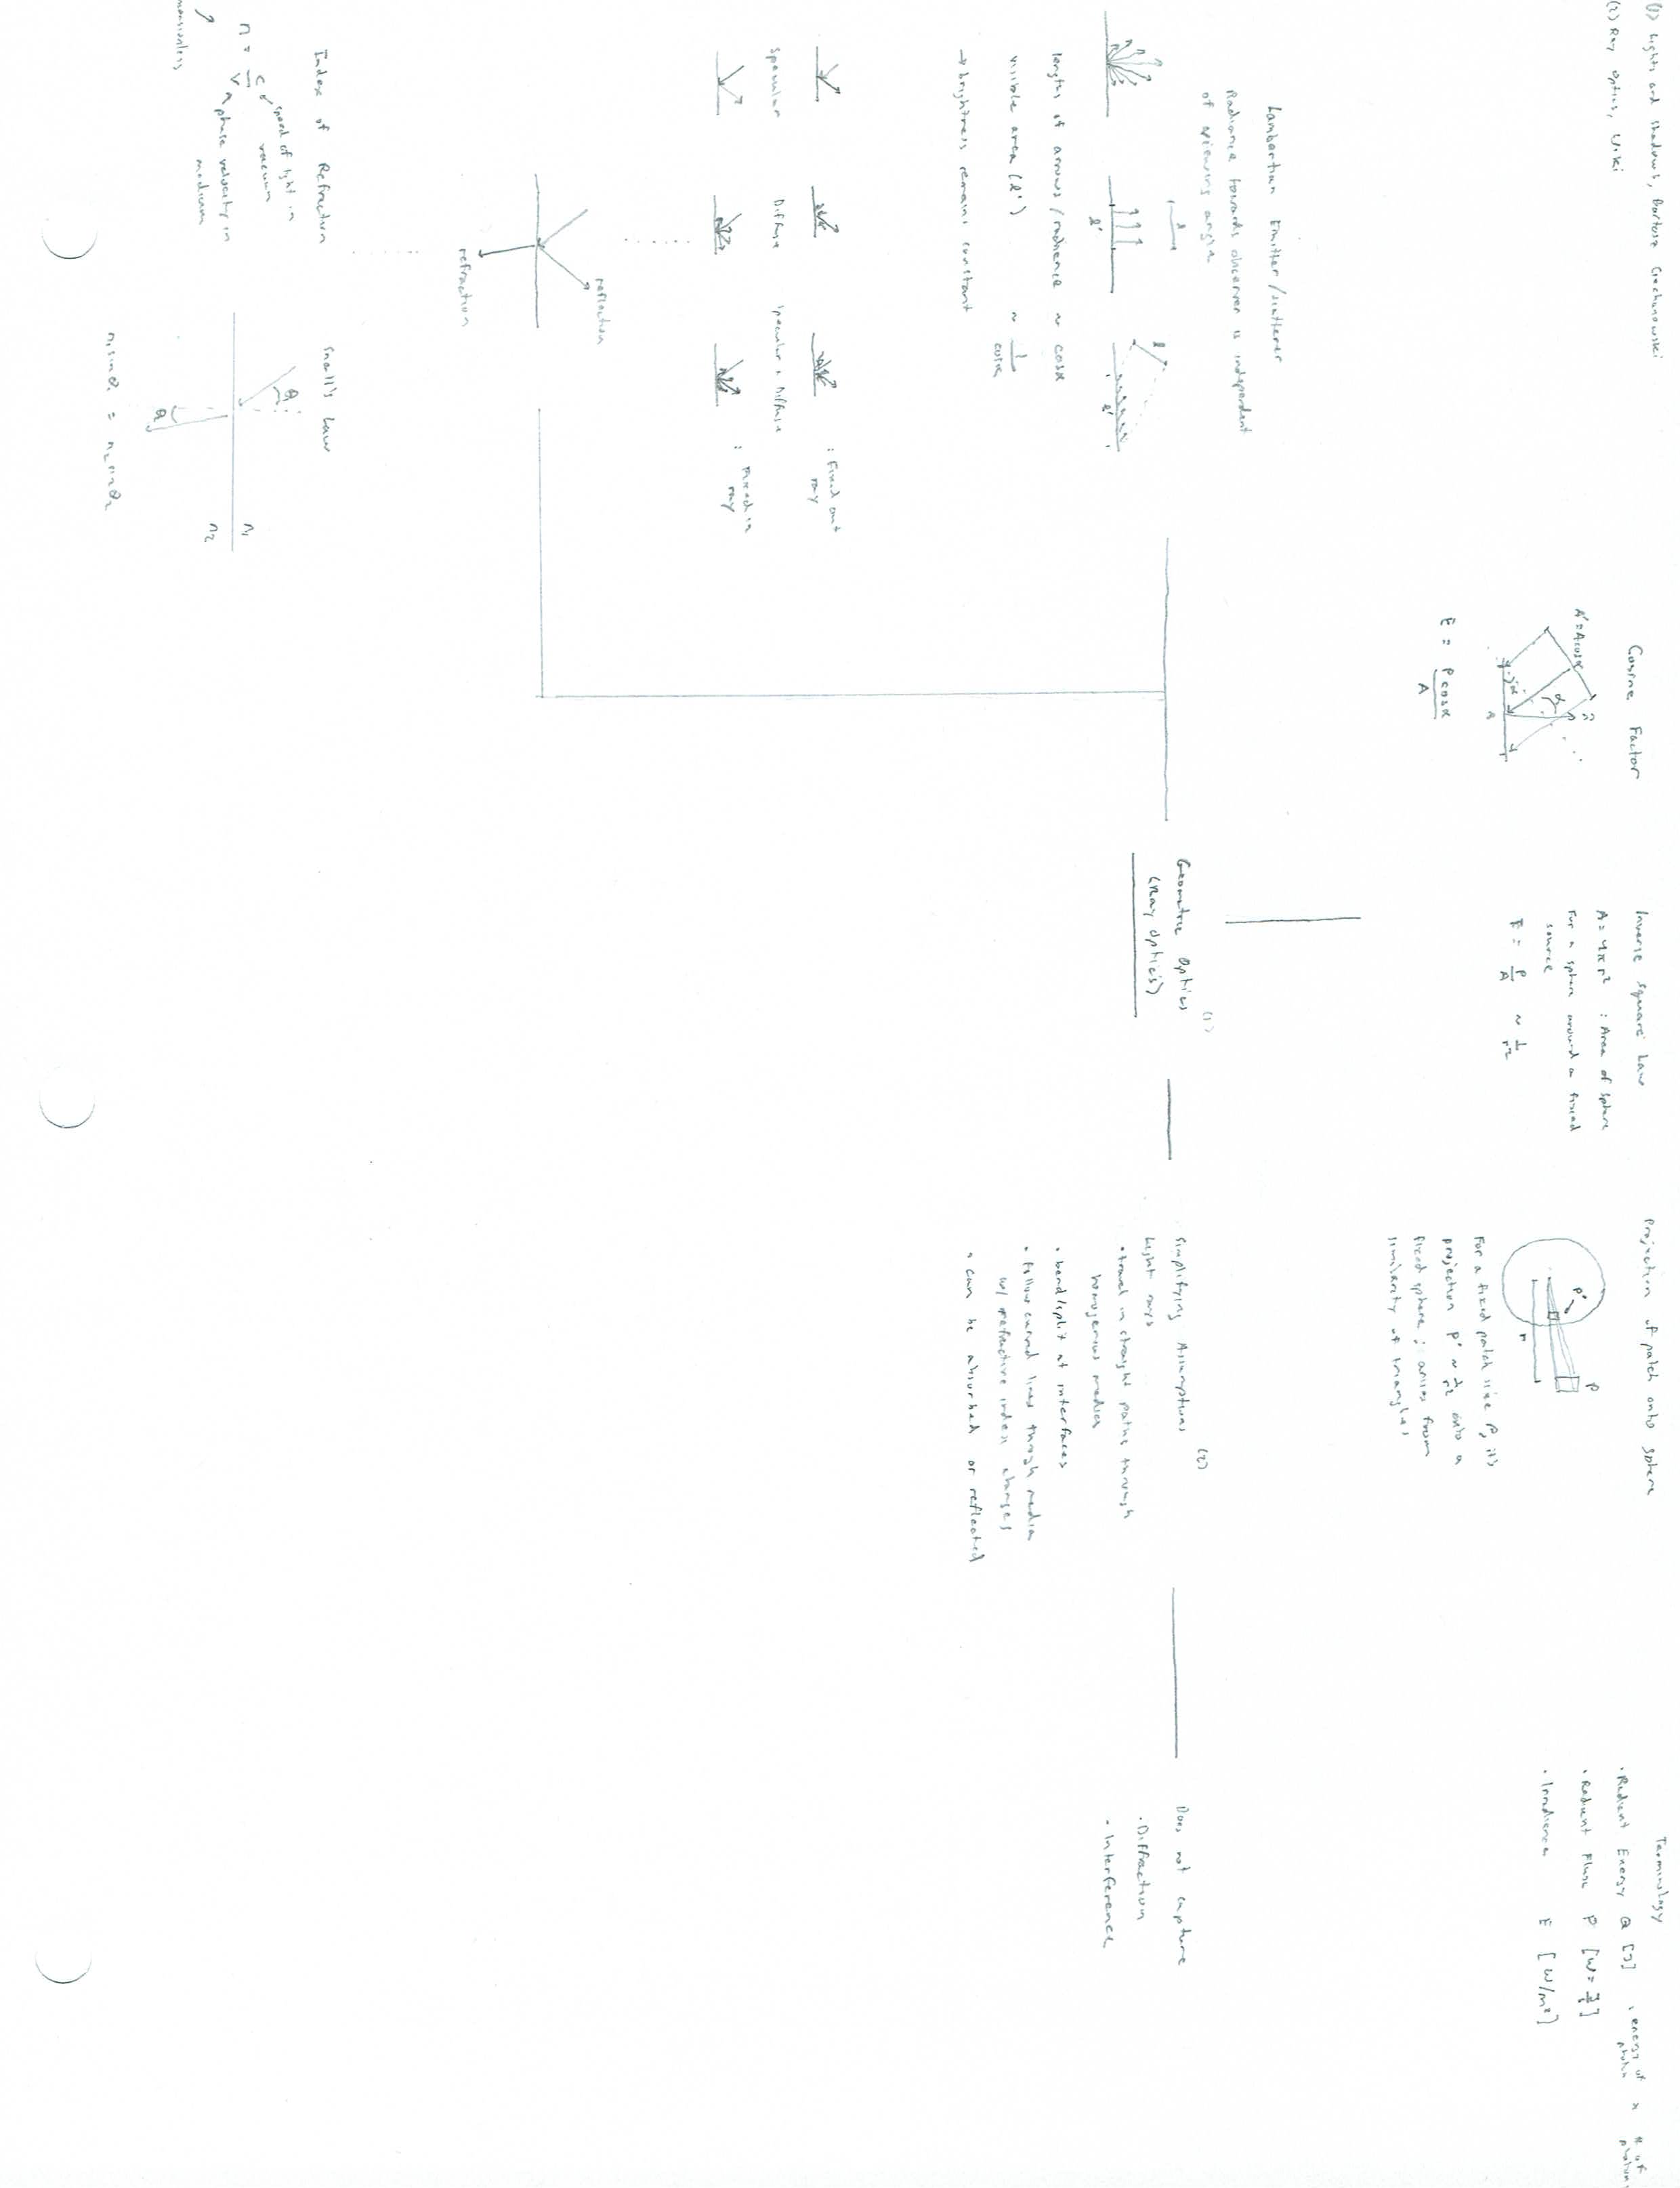 (1) Lights and Shadows, Bartosz Ciechanowski
(2) Ray Optics, Wiki
Cosine Factor
A' = A cosα
n̂
α
α
A
E = P cosα / A
Inverse Square Law
A = 4πr² : Area of Sphere
For a sphere around a fixed
source
E = P/A ~ 1/r²
Projection of patch onto sphere
P'
P
r
For a fixed patch size P, its
projection P' ~ 1/r² onto a
fixed sphere; arises from
similarity of triangles
Terminology
• Radient Energy Q [J] : energy of photon × # of photons
• Radient Flux P [W = J/s]
• Irradience E [W/m²]
Lambertian Emitter/scatterer
Radiance towards observer is independent
of viewing angle
l
l'
l
l'
lengths of arrows / radience ~ cosα
visible area (l') ~ 1/cosα
→ brightness remains constant
Geometric Optics (1)
(Ray Optics)
Simplifying Assumptions (2)
Light rays
• travel in straight paths through
homogenous media
• bend/split at interfaces
• follow curved lines through media
w/ refractive index changes
• can be absorbed or reflected
Does not capture
• Diffraction
• Interference
: Fixed out
ray
Specular Diffuse Specular + Diffuse
: Fixed in
ray
reflection
refraction
Index of Refraction
n = c/v
speed of light in
vacuum
phase velocity in
medium
mensionless
Snell's Law
θ₁
n₁
n₂
θ₂
n₁sinθ₁ = n₂sinθ₂